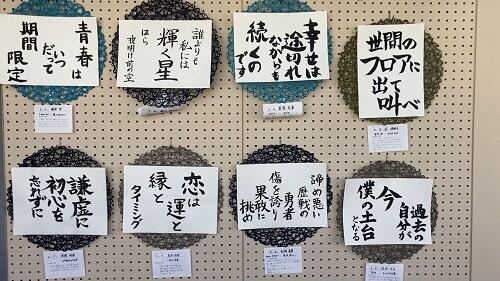 青春は
いつ
だって
期間
限定
誰よりも
私には、
輝く星
ほら
夜明け前の空
幸せは
途切れ
ながらも
続くの
です
世間の
フロアに
出て
叫べ
謙虚に
初心を
忘れずに
恋は
運と
縁と
タイミング
諦め悪い
歴戦の
勇者
傷を誇り
果敢に
挑め
過去の
自分が
今
僕の土台
となる